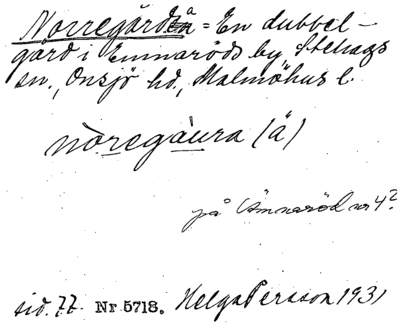 Norregårdå = En dubbel-
gård i Emmaröds by, Stehags
sn., Onsjö hd., Malmöhus l.
nòregàura (å)
på Ämnaröd nr 4?
sid. 77. Nr 5718. Helga Persson 1931